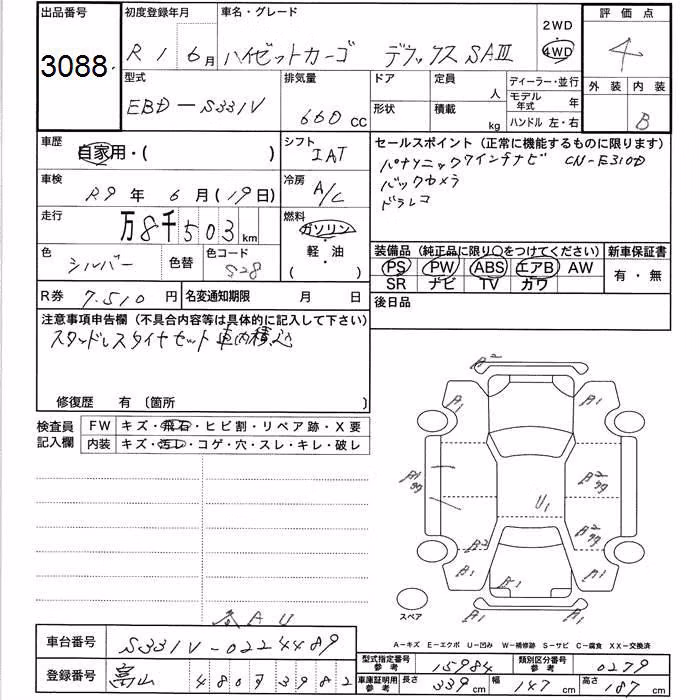 出品番号 初度登録年月 車名・グレード 2WD 評価点
3088 R1 6月 ハイゼットカーゴ デラックス SAⅢ 4WD 4
型式 排気量 ドア 定員 人 ディーラー・並行 外装 内装
モデル年式 年
EBD-S331V 660 cc 形状 積載 kg ハンドル 左・右 B
車歴 自家用・( ) シフト IAT セールスポイント(正常に機能するものに限ります)
パナソニックワインデナビ CN-E310D
車検 R9年 6月(19日) 冷房 A/C バックカメラ
ドラレコ
走行 万8千503km 燃料 ガソリン
軽・油
( )
色 シルバー 色替 色コード S28
装備品(純正品に限り○をつけてください) 新車保証書
PS PW ABS エアB AW 有・無
SR ナビ TV カワ
R券 7.510円 名変通知期限 月 日 後日品
注意事項申告欄(不具合内容等は具体的に記入して下さい)
スタッドレスタイヤセット車内積込
修復歴 有〔箇所 〕
検査員記入欄 FW キズ・飛石・ヒビ割・リペア跡・X要
内装 キズ・汚レ・コゲ・穴・スレ・キレ・破レ
A2
A1 A1
A2
U1
A2 A2
A1 A1 A1
スペア A1
A-キズ E-エクボ U-凹み W-補修跡 S-サビ C-腐食 XX-交換済
車台番号 S331V-0224489
型式指定番号参考 15984 類別区分番号参考 0279
登録番号 富山 480 ヲ 3982
車庫証明用参考 長さ 339cm 幅 147cm 高さ 187cm